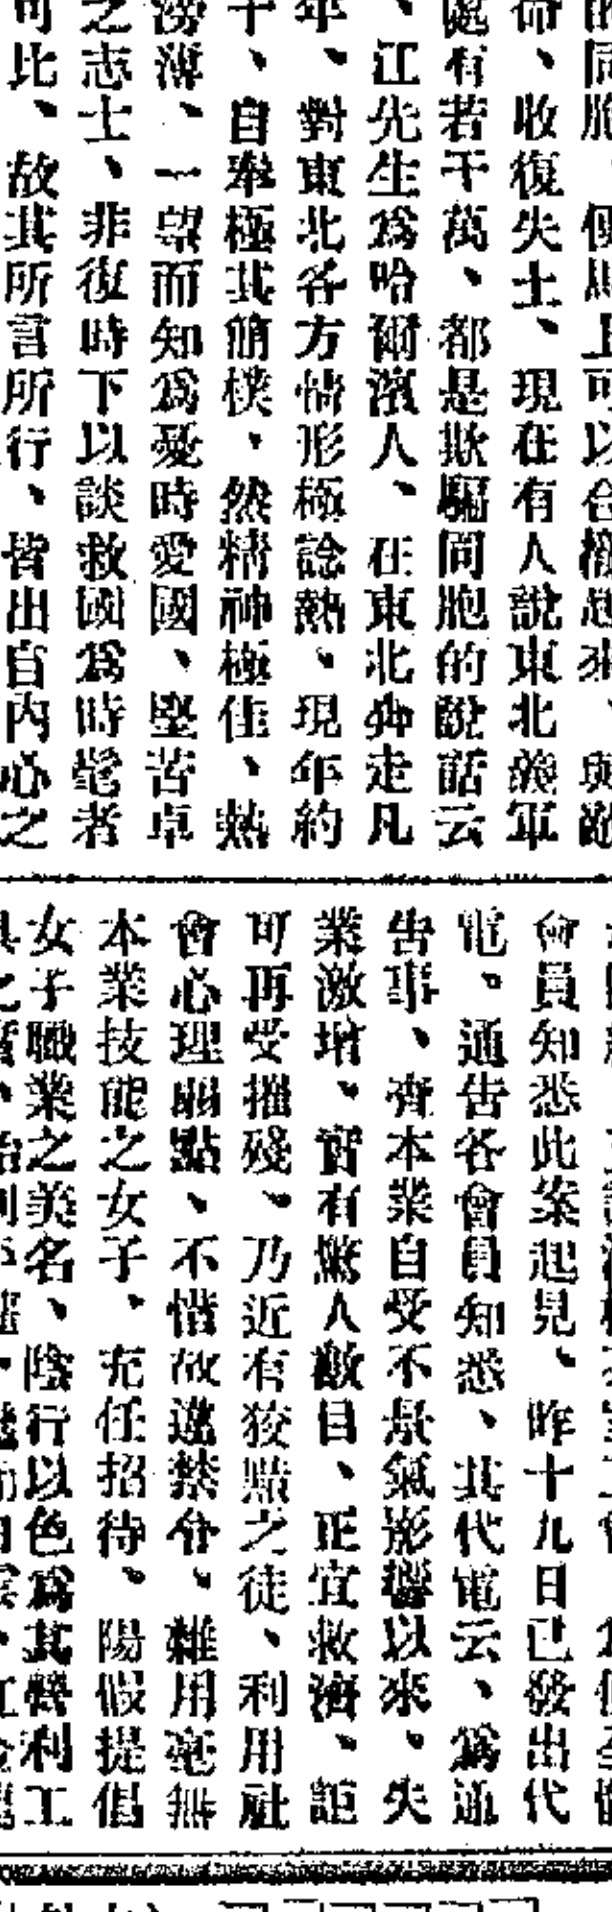 命、收復失土、現在有人說東北義軍
處有若干萬、都是欺騙同胞的說話云
、江先生爲哈爾濱人、在東北奔走凡
年、對東北各方情形極諗熱、現年約
十、自奉極其簡樸、然精神極佳、熱
滂薄、一望而知爲憂時愛國、堅苦卓
之志士、非復時下以談救國爲時髦者
可比、故其所言所行、皆出自內心之
會員知悉此案起見、昨十九日已發出代
電。通告各會員知悉、其代電云、爲通
告事、竊本業自受不景氣影響以來、失
業激增、實有驚人數目、正宜救濟、詎
可再受摧殘、乃近有狡黠之徒、利用社
會心理弱點、不惜故違禁令、雜用毫無
本業技能之女子、充任招待、陽假提倡
女子職業之美名、陰行以色爲其營利工